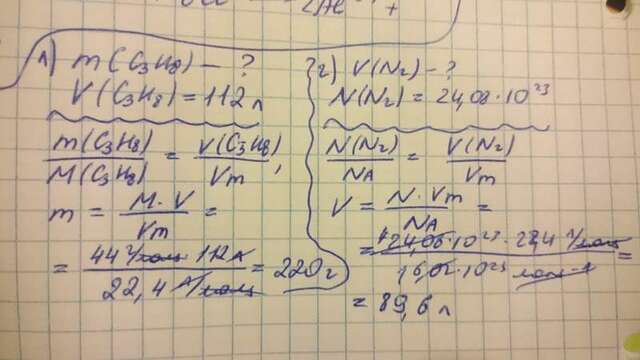 л) m(C₃H₈) – ?
V(C₃H₈) = 112 л
m(C₃H₈)/M(C₃H₈) = V(C₃H₈)/Vm;
m = M·V/Vm =
= 44 г/моль · 112 л / 22,4 л/моль = 220 г
2) V(N₂) – ?
N(N₂) = 24,08 · 10²³
N(N₂)/NA = V(N₂)/Vm
V = N·Vm/NA =
= 24,08·10²³ · 22,4 л/моль / 6,02·10²³ моль⁻¹ =
= 89,6 л